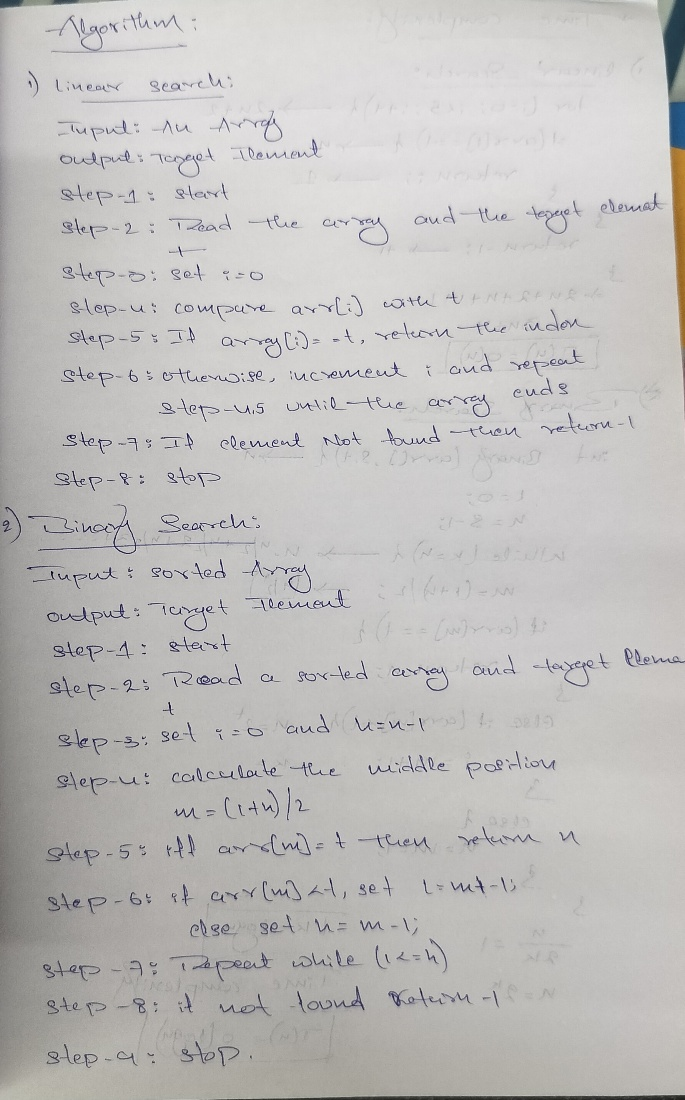 Algorithm:
1) Linear search:
Input: An Array
output: Target Element
Step-1: start
Step-2: Read the array and the target element
t
Step-3: set i=0
Step-4: compare arr[i] with t
Step-5: If array[i]==t, return the index
Step-6: otherwise, increment i and repeat
Step-4,5 until the array ends
Step-7: If element Not found then return -1
Step-8: stop
2) Binary Search:
Input: sorted Array
output: Target Element
Step-1: start
Step-2: Read a sorted array and target Eleme
t
Step-3: set i=0 and h=n-1
Step-4: calculate the middle position
m=(l+h)/2
Step-5: if arr[m]=t then return
Step-6: if arr[m]<t, set l=m+1;
else set h=m-1;
Step-7: Repeat while (l<=h)
Step-8: if not found Return -1
Step-9: stop.